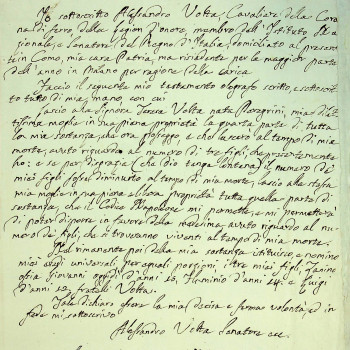 Io sottoscritto Alessandro Volta, Cavaliere della Coro=
na di ferro della Legion d'onore, membro dell'Istituto Na=
zionale, e Senatore del Regno d'Italia, domiciliato al presen=
te in Como, mia cara Patria, ma risidente per la maggior parte
dell'anno in Milano per ragione della carica.
Faccio il seguente mio testamento olografo scritto, e sottoscrit=
to tutto di mia mano, con cui
Lascio alla Signora Teresa Volta nata Peregrini, mia dilet=
tissima moglie in sua piena proprietà la quarta parte di tutta
la mia sostanza, che ora posseggo, e che lascerò al tempo di mia
morte, avuto riguardo al numero di tre figli, che presentemente
ho; e se per disgrazia (che dio tenga lontana) il numero di
miei figli fosse diminuito al tempo di mia morte, lascio alla stessa
mia moglie in sua piena e libera proprietà tutta quella parte di
sostanza, che il Codice Napoleone mi permette, e mi permetterà
di poter disporre in favore della medesima, avuto riguardo al nu=
mero de' figli, che si troveranno viventi al tempo di mia morte.
Nel rimanente poi della mia sostanza istituisco, e nomino
miei eredi universali per eguali porzioni, i tre miei figli, Zanino
ossia Giovanni oggidì d'anni 16, Flaminio d'anni 14, e Luigi
d'anni 12 fratelli Volta.
Tale dichiaro essere la mia decisa e ferma volontà, ed in
fede mi sottoscrivo
Alessandro Volta Senatore